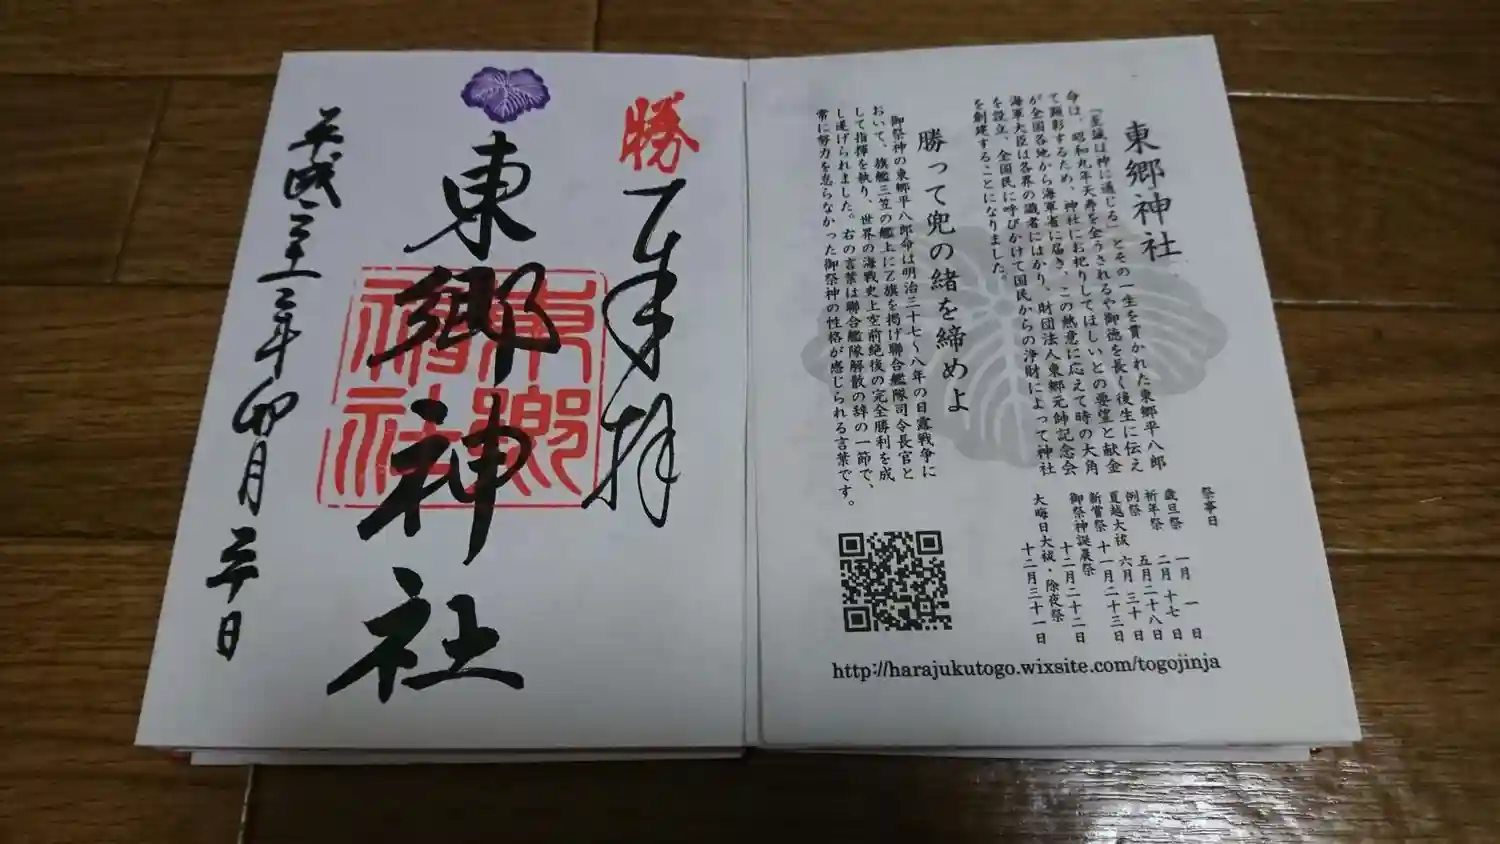 東郷神社
「至誠は神に通じる」とその一生を貫かれた東郷平八郎
命は、昭和九年天寿を全うされるや御徳を長く後生に伝え
て顕彰するため、神社にお祀りしてほしいとの要望と献金
が全国各地から海軍省に届き、この熱意に応えて時の大角
海軍大臣は各界の識者にはかり、財団法人東郷元帥記念会
を設立、全国民に呼びかけて国民からの浄財によって神社
を創建することになりました。
勝って兜の緒を締めよ
御祭神の東郷平八郎命は明治三十七〜八年の日露戦争に
おいて、旗艦三笠の艦上にZ旗を掲げ聯合艦隊司令長官と
して指揮を執り、世界の海戦史上空前絶後の完全勝利を成
し遂げられました。右の言葉は聯合艦隊解散の辞の一節で、
常に努力を怠らなかった御祭神の性格が感じられる言葉です。
祭事日
歳旦祭 一月 一日
祈年祭 二月 十七日
例祭 五月二十八日
夏越大祓 六月 三十日
新嘗祭 十一月二十三日
御祭神誕辰祭 十二月二十二日
大晦日大祓・除夜祭 十二月三十一日
http://harajukutogo.wixsite.com/togojinja
勝
奉拝
東郷神社
東郷神社
平成三十一年卯月三十日